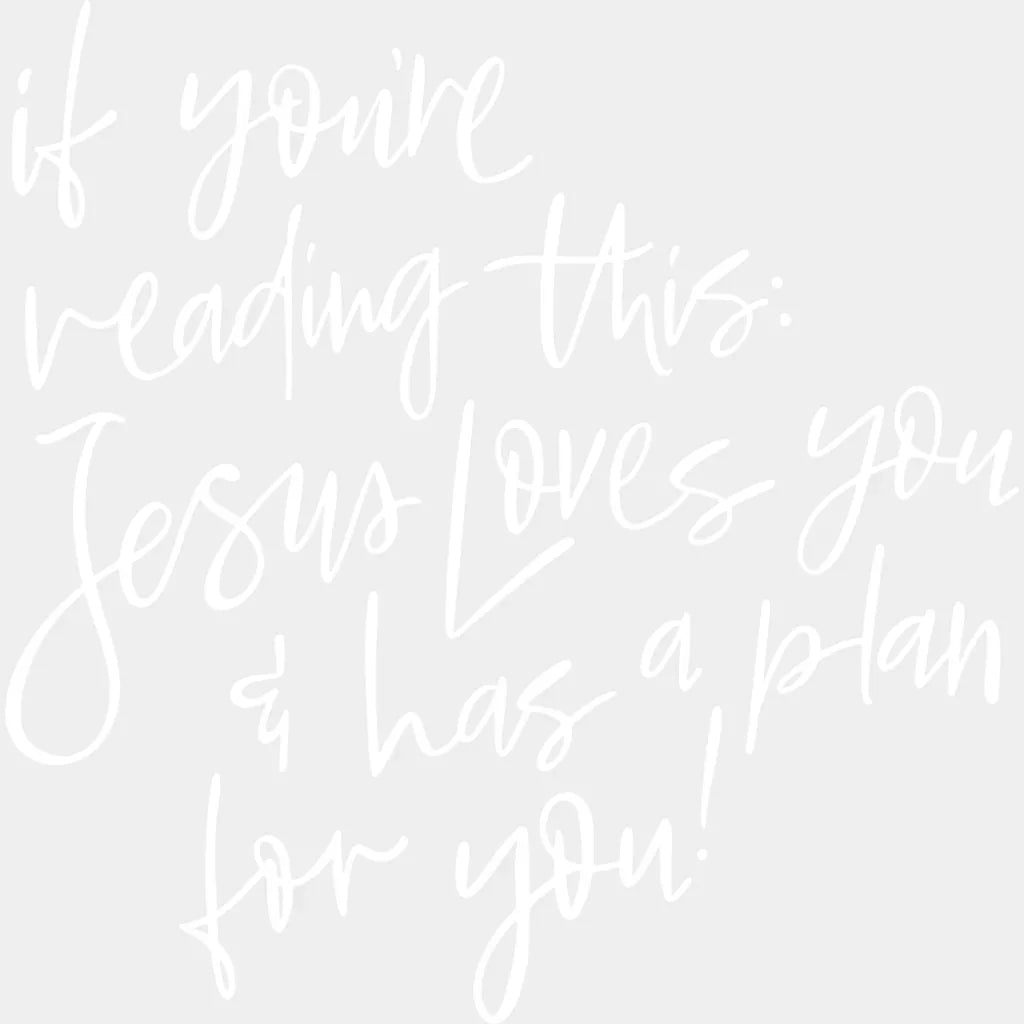 if you're
reading this:
Jesus Loves you
& has a plan
for you!